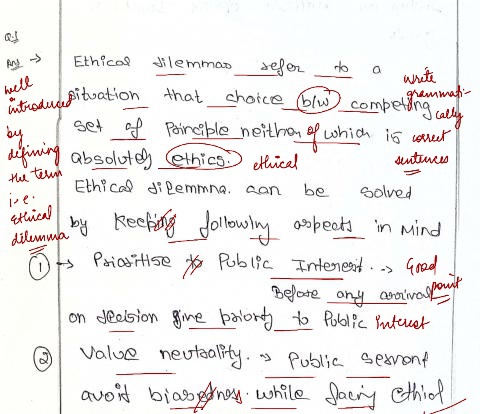 Q.1
Ans → Ethical dilemmas refer to a
situation that choice b/w competing
set of Principle neither of which is
absolutely ethics. ethical
Ethical dilemma. can be solved
by Keeping following aspects in Mind
① → Prioritise to Public Interest. → Good point
Before any arrival
on decision give priority to Public Interest
② Value neutrality. → Public servant
avoid biasedness while facing Ethical
well
introduced
by
defining
the term
i.e.
Ethical
dilemma
write
grammati-
cally
correct
sentences